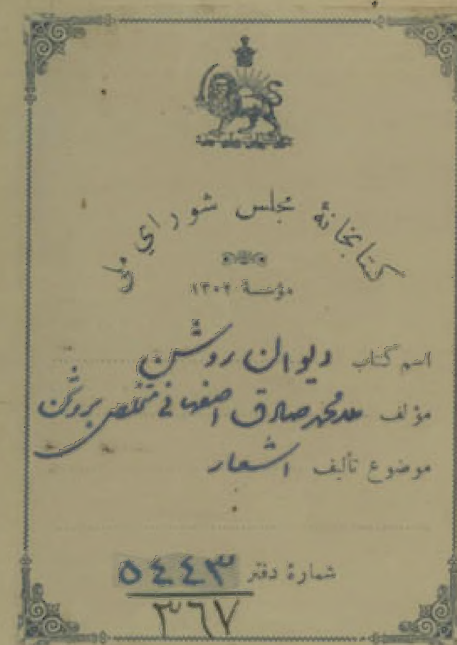 كتابخانهٔ مجلس شوراي ملى
مؤسسهٔ ۱۳۰۲
اسم كتاب ديوان روشن
مؤلف محمدصادق اصفهانى متخلص بروشن
موضوع تأليف اشعار
شمارهٔ دفتر ۵۴۴۳
۳۶۷